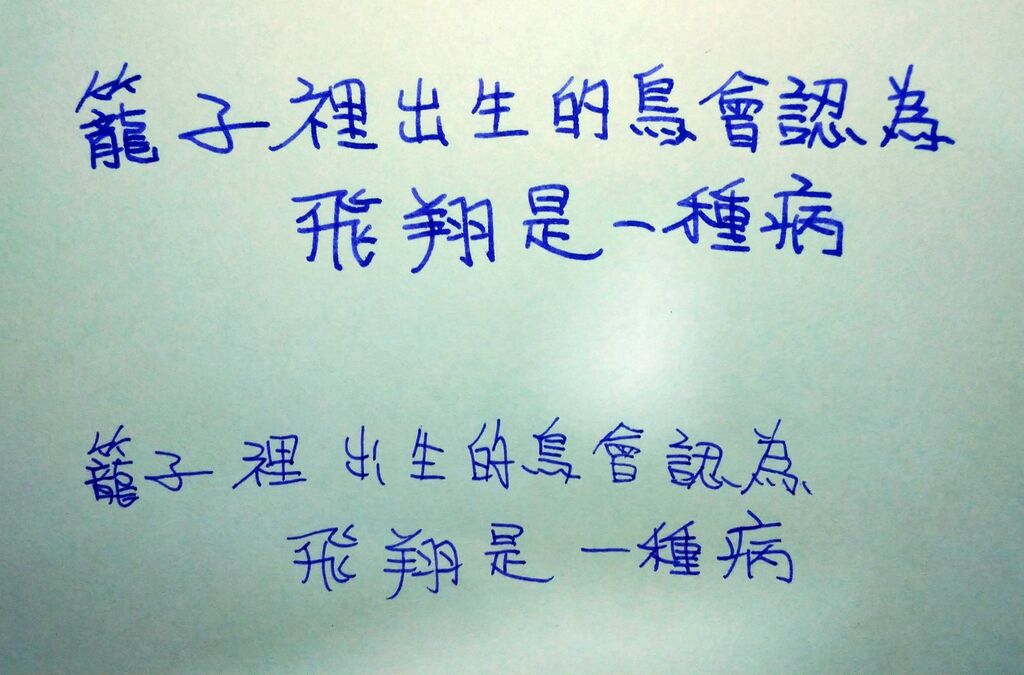 籠子裡出生的鳥會認為
飛翔是一種病
籠子裡出生的鳥會認為
飛翔是一種病